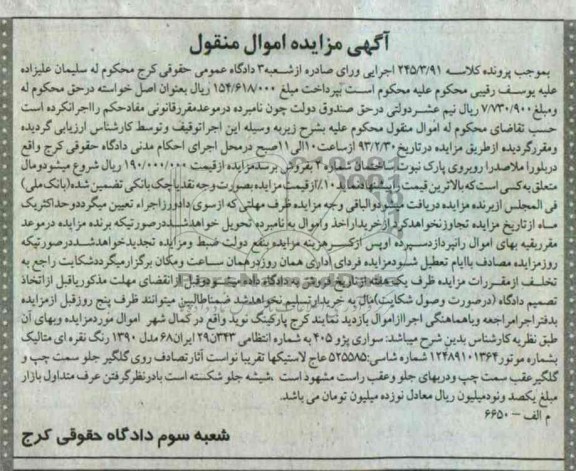 آگهی مزایده اموال منقول
بموجب پرونده کلاسه ۲۴۵/۳/۹۱ اجرایی ورای صادره ازشعبه۳ دادگاه عمومی حقوقی کرج محکوم له سلیمان علیزاده
علیه یوسف رقیبی محکوم علیه محکوم است بپرداخت مبلغ ۱۵۴/۶۱۸/۰۰۰ ریال بعنوان اصل خواسته درحق محکوم له
ومبلغ۷/۷۳۰/۹۰۰ ریال نیم عشردولتی درحق صندوق دولت چون نامبرده درموعدمقررقانونی مفادحکم رااجرانکرده است
حسب تقاضای محکوم له اموال منقول محکوم علیه بشرح زیربه وسیله این اجراتوقیف وتوسط کارشناس ارزیابی گردیده
ومقررگردیده ازطریق مزایده درتاریخ ۹۳/۲/۳۰ ازساعت۱۰الی ۱۱صبح درمحل اجرای احکام مدنی دادگاه حقوقی کرج واقع
دربلورا ملاصدرا روبروی پارک نبوت ساختمان شماره۲ بفروش برسدمزایده ازقیمت ۱۹۰/۰۰۰/۰۰۰ ریال شروع میشودومال
متعلق به کسی است که بالاترین قیمت راپیشنهادنماید ۱۰٪ازقیمت مزایده بصورت وجه نقدیاچک بانکی تضمین شده(بانک ملی)
فی المجلس ازبرنده مزایده دریافت میشودوالباقی وجه مزایده ظرف مهلتی که ازسوی دادورزاجراء تعیین میگرددوحداکثریک
ماه ازتاریخ مزایده تجاوزنخواهدکردازخریداراخذ واموال به نامبرده تحویل خواهدشددرصورتیکه برنده مزایده درموعد
مقرربقیه بهای اموال رانپردازدسپرده اوپس ازکسرهزینه مزایده بنفع دولت ضبط ومزایده تجدیدخواهدشددرصورتیکه
روزمزایده مصادف باایام تعطیل شودمزایده فردای اداری همان روزدرهمان ساعت ومکان برگزارمیگرددشکایت راجع به
تخلف ازمقررات مزایده ظرف یک هفته ازتاریخ فروش به دادگاه داده میشودوقبل ازانقضای مهلت مذکوریاقبل ازاتخاذ
تصمیم دادگاه (درصورت وصول شکایت)مال به خریدارتسلیم نخواهدشد ضمناطالبین میتوانند ظرف پنج روزقبل ازمزایده
بدفتراجرامراجعه وباهماهنگی اجراازاموال بازدید نمایند کرج پارکینگ نوید واقع در کمال شهر اموال موردمزایده وبهای آن
طبق نظریه کارشناس بدین شرح میباشد: سواری پژو ۴۰۵ به شماره انتظامی ۳۴۳ن۲۹ ایران۶۸ مدل ۱۳۹۰ رنگ نقره ای متالیک
بشماره موتور۱۲۴۸۹۱۰۱۳۶۴ شماره شاسی:۵۲۵۵۸۵ عاج لاستیکها تقریبا نواست آثارتصادف روی گلگیر جلو سمت چپ و
گلگیرعقب سمت چپ ودربهای جلو وعقب راست مشهود است .شیشه جلو شکسته است بادرنظرگرفتن عرف متداول بازار
مبلغ یکصد ونودمیلیون ریال معادل نوزده میلیون تومان می باشد.
م الف – ۶۶۵۰
شعبه سوم دادگاه حقوقی کرج